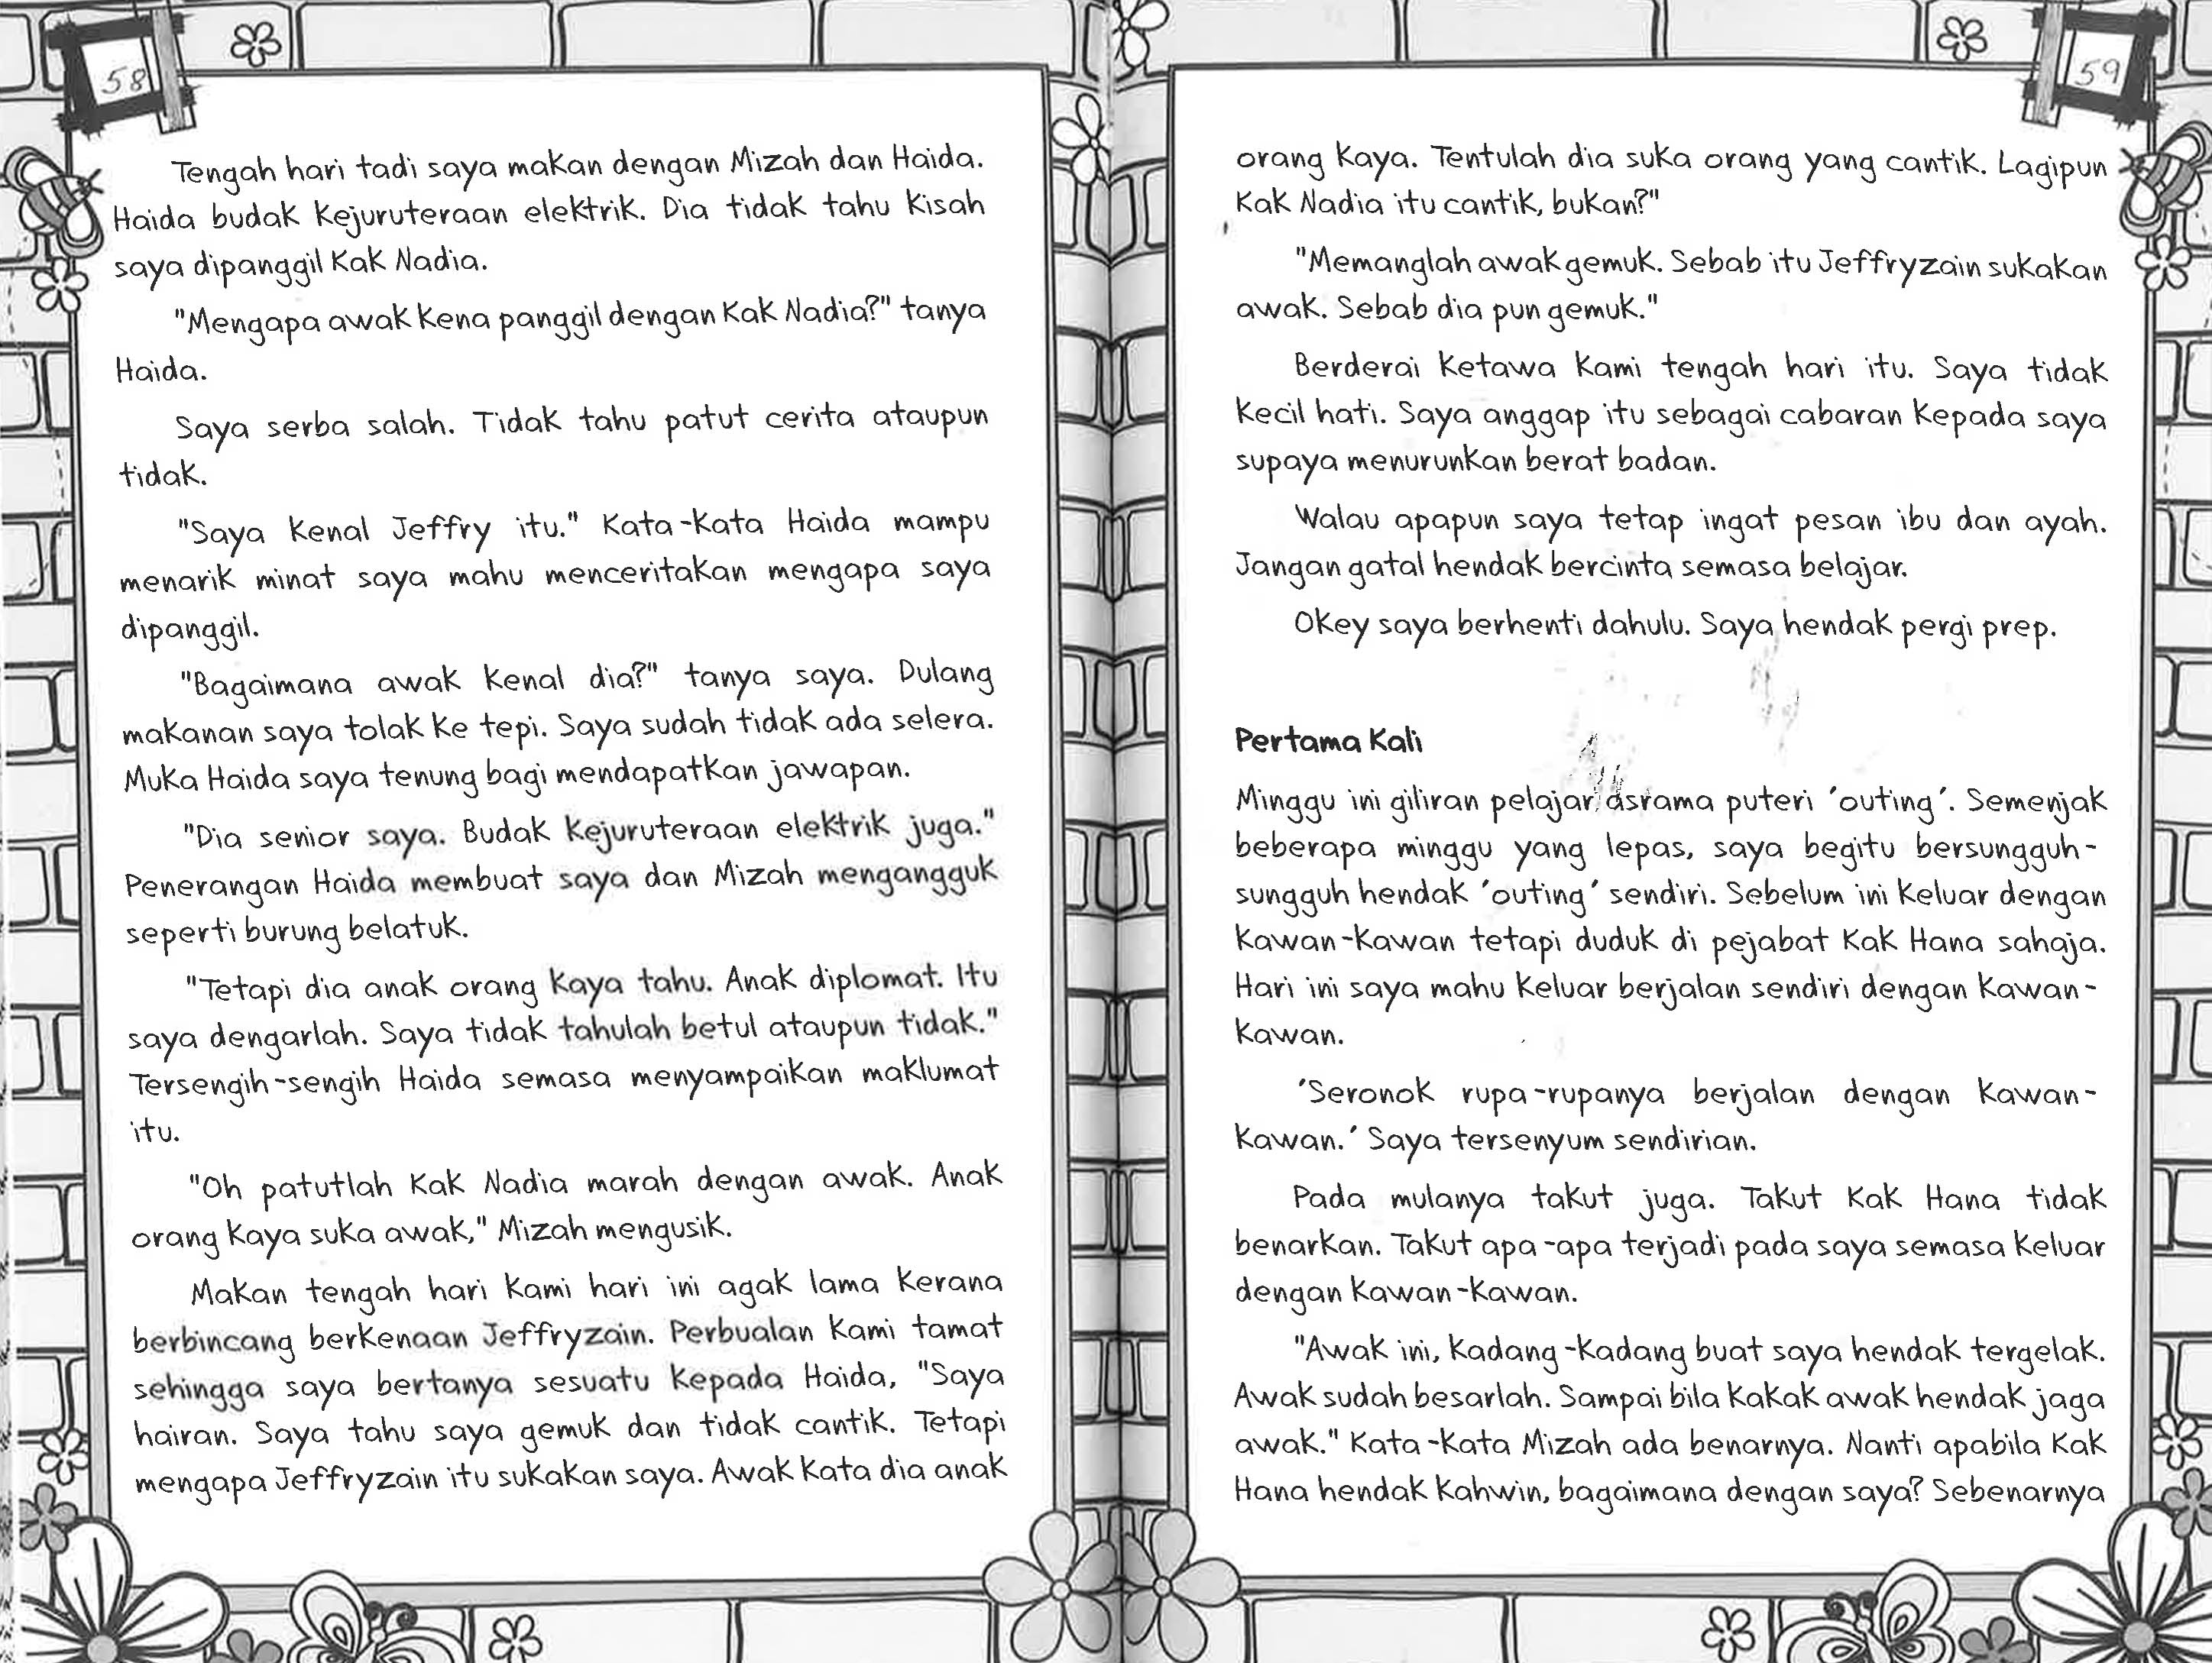 58
Tengah hari tadi saya makan dengan Mizah dan Haida.
Haida budak kejuruteraan elektrik. Dia tidak tahu kisah
saya dipanggil Kak Nadia.
"Mengapa awak kena panggil dengan Kak Nadia?" tanya
Haida.
Saya serba salah. Tidak tahu patut cerita ataupun
tidak.
"Saya kenal Jeffry itu." Kata-kata Haida mampu
menarik minat saya mahu menceritakan mengapa saya
dipanggil.
"Bagaimana awak kenal dia?" tanya saya. Dulang
makanan saya tolak ke tepi. Saya sudah tidak ada selera.
Muka Haida saya tenung bagi mendapatkan jawapan.
"Dia senior saya. Budak kejuruteraan elektrik juga."
Penerangan Haida membuat saya dan Mizah mengangguk
seperti burung belatuk.
"Tetapi dia anak orang kaya tahu. Anak diplomat. Itu
saya dengarlah. Saya tidak tahulah betul ataupun tidak."
Tersengih-sengih Haida semasa menyampaikan maklumat
itu.
"Oh patutlah Kak Nadia marah dengan awak. Anak
orang kaya suka awak," Mizah mengusik.
Makan tengah hari kami hari ini agak lama kerana
berbincang berkenaan Jeffryzain. Perbualan kami tamat
sehingga saya bertanya sesuatu kepada Haida, "Saya
hairan. Saya tahu saya gemuk dan tidak cantik. Tetapi
mengapa Jeffryzain itu sukakan saya. Awak kata dia anak
59
orang kaya. Tentulah dia suka orang yang cantik. Lagipun
Kak Nadia itu cantik, bukan?"
"Memanglah awak gemuk. Sebab itu Jeffryzain sukakan
awak. Sebab dia pun gemuk."
Berderai ketawa kami tengah hari itu. Saya tidak
kecil hati. Saya anggap itu sebagai cabaran kepada saya
supaya menurunkan berat badan.
Walau apapun saya tetap ingat pesan ibu dan ayah.
Jangan gatal hendak bercinta semasa belajar.
Okey saya berhenti dahulu. Saya hendak pergi prep.
Pertama Kali
Minggu ini giliran pelajar asrama puteri 'outing'. Semenjak
beberapa minggu yang lepas, saya begitu bersungguh-
sungguh hendak 'outing' sendiri. Sebelum ini keluar dengan
kawan-kawan tetapi duduk di pejabat Kak Hana sahaja.
Hari ini saya mahu keluar berjalan sendiri dengan kawan-
kawan.
'Seronok rupa-rupanya berjalan dengan kawan-
kawan.' Saya tersenyum sendirian.
Pada mulanya takut juga. Takut Kak Hana tidak
benarkan. Takut apa-apa terjadi pada saya semasa keluar
dengan kawan-kawan.
"Awak ini, kadang-kadang buat saya hendak tergelak.
Awak sudah besarlah. Sampai bila kakak awak hendak jaga
awak." Kata-kata Mizah ada benarnya. Nanti apabila Kak
Hana hendak kahwin, bagaimana dengan saya? Sebenarnya